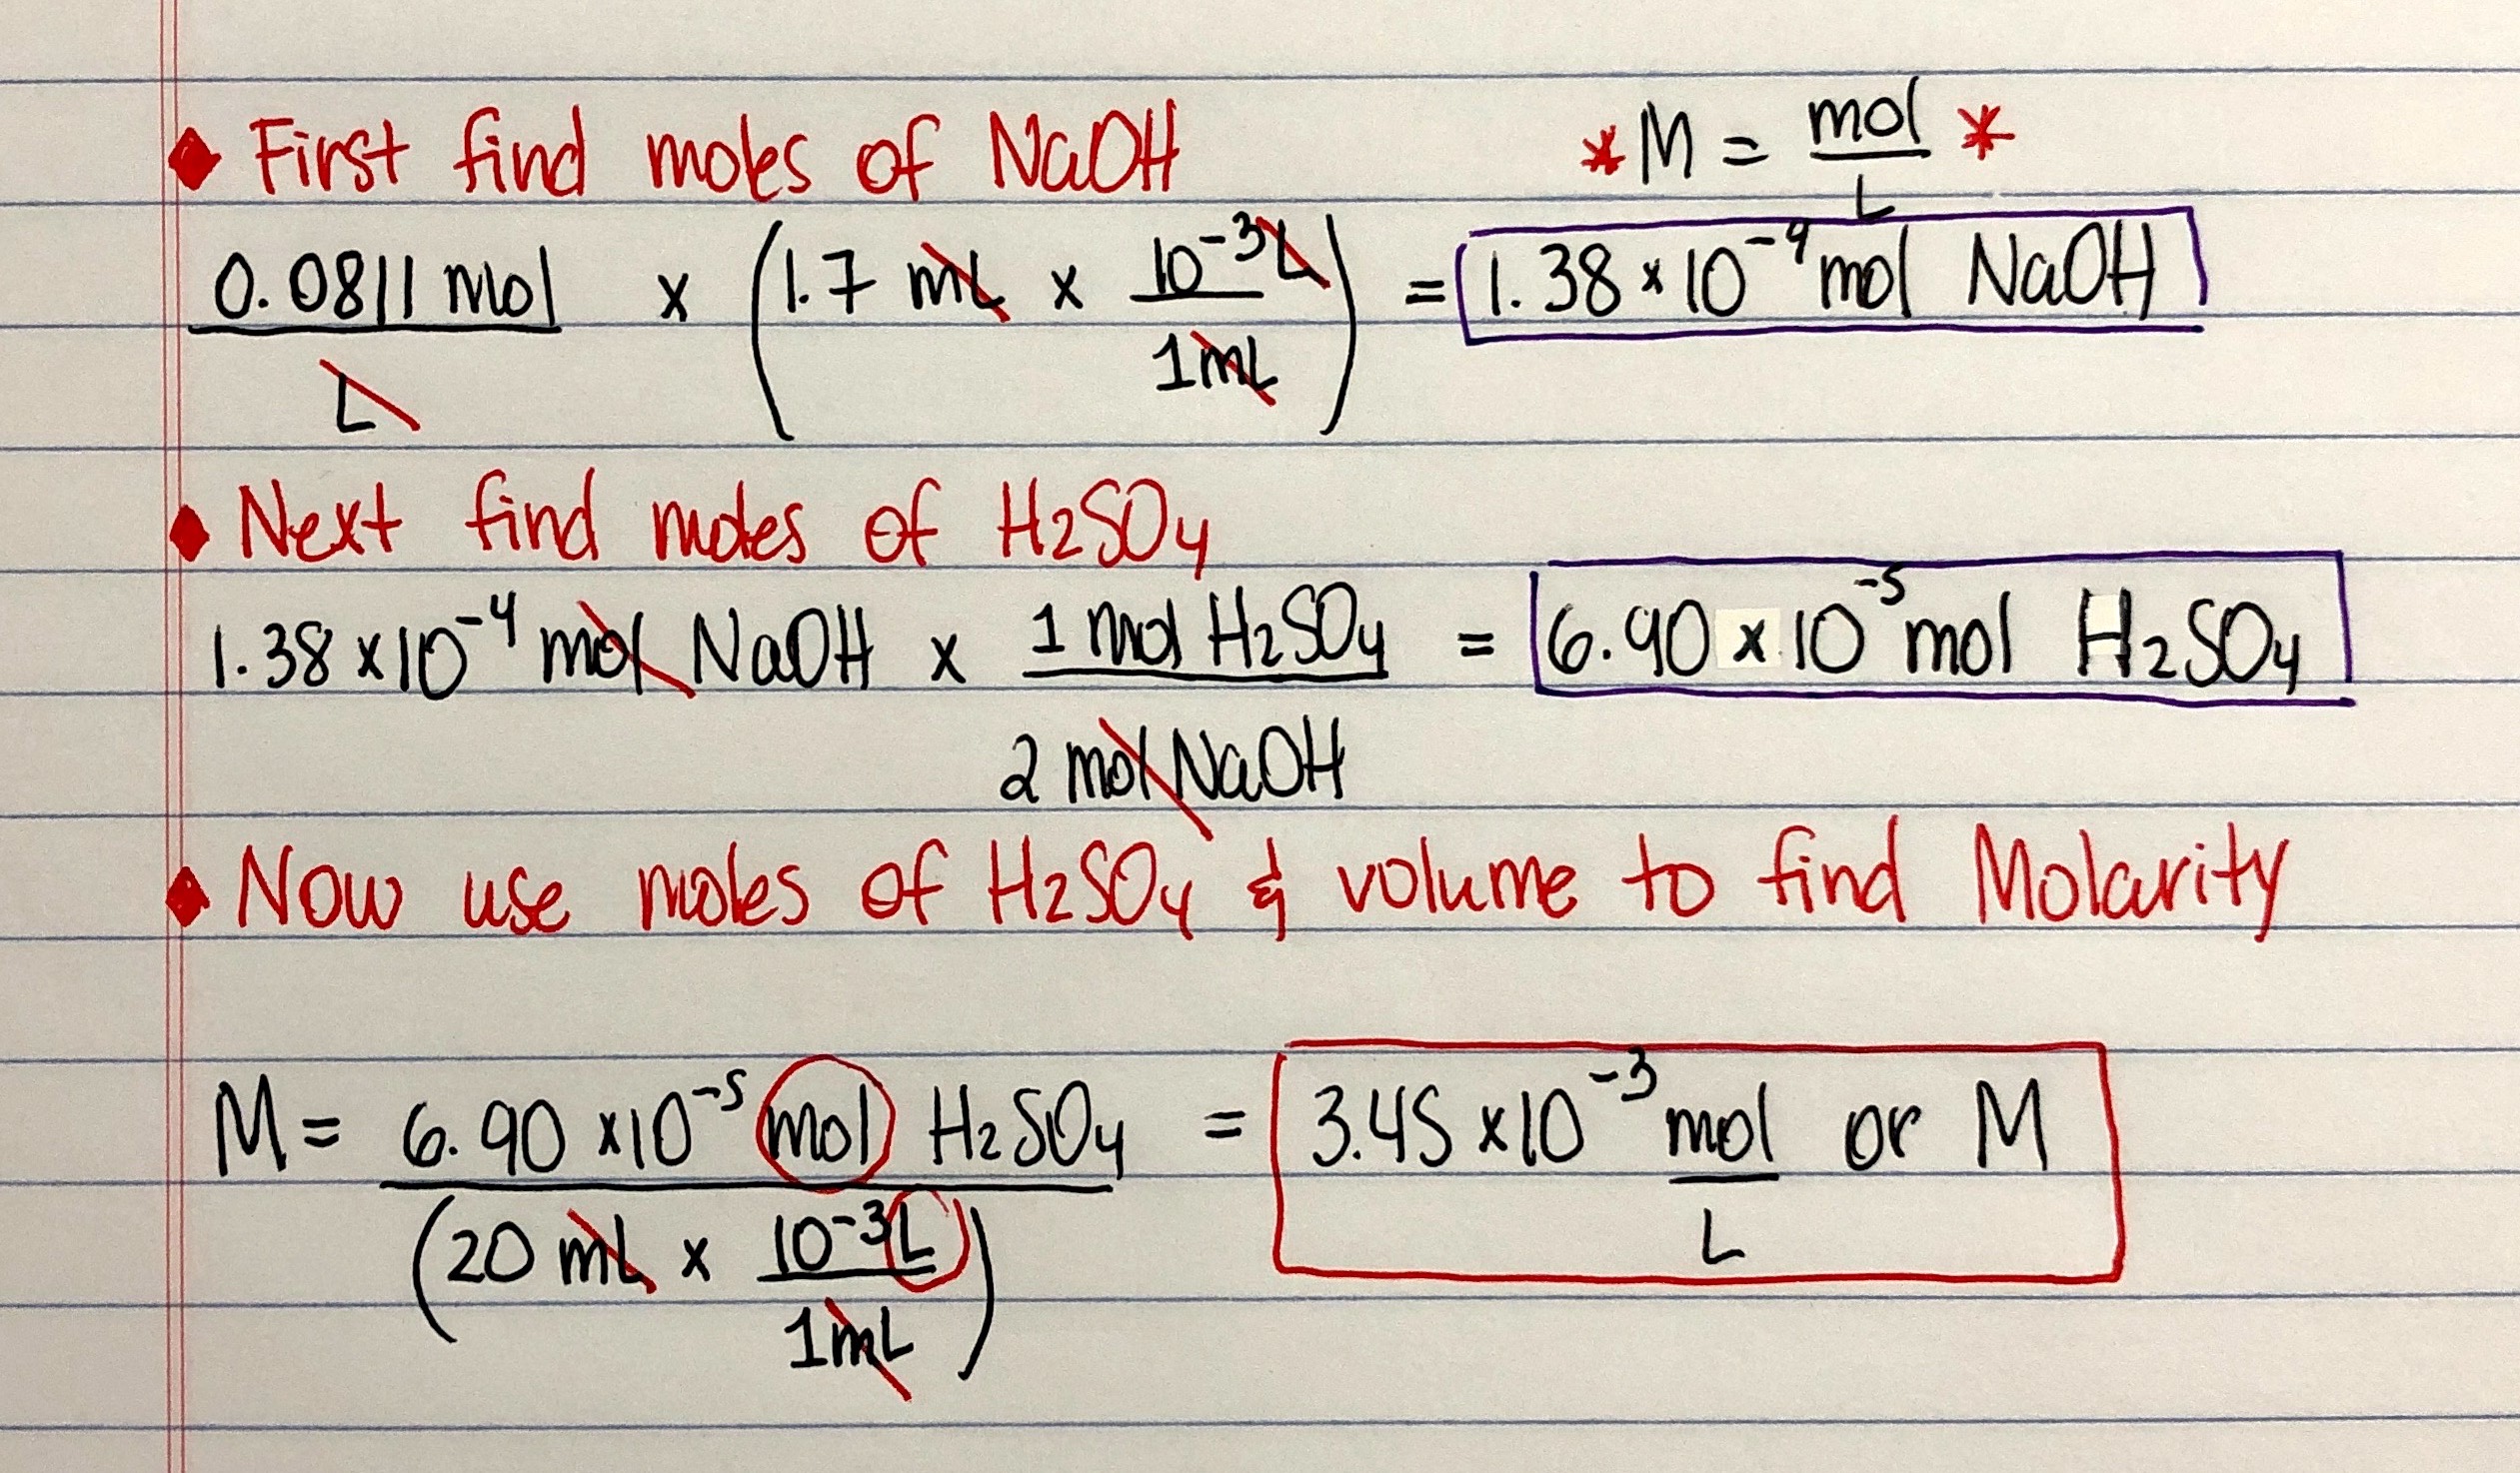 ♦ First find moles of NaOH
*M = mol/L *
0.0811 mol/L x (1.7 mL x 10⁻³L/1mL) = 1.38 x 10⁻⁴ mol NaOH
♦ Next find moles of H₂SO₄
1.38 x 10⁻⁴ mol NaOH x 1 mol H₂SO₄/2 mol NaOH = 6.90 x 10⁻⁵ mol H₂SO₄
♦ Now use moles of H₂SO₄ & volume to find Molarity
M = 6.90 x 10⁻⁵ mol H₂SO₄/(20 mL x 10⁻³L/1mL) = 3.45 x 10⁻³ mol/L or M